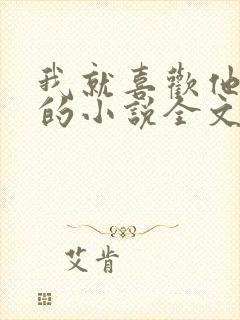 我就喜歡他
的小說全文
艾肯